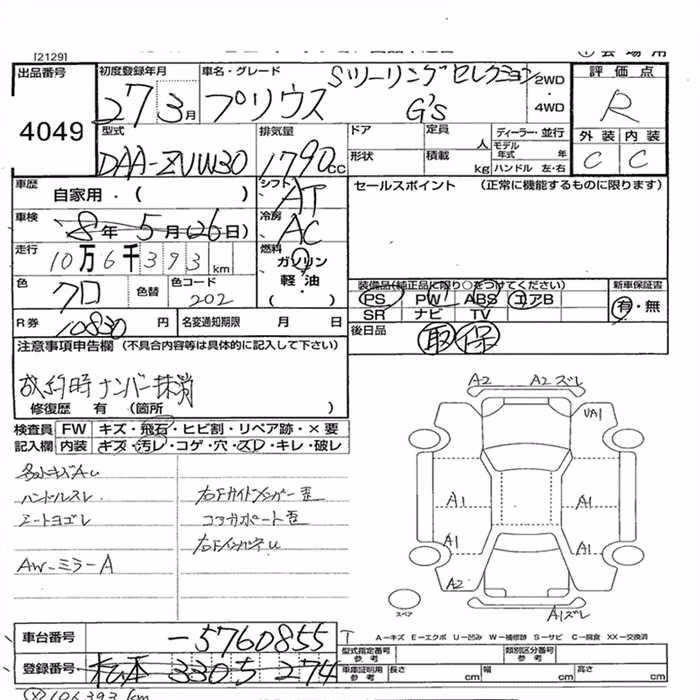 [2129]
出品番号 初度登録年月 車名・グレード Sツーリングセレクション 2WD 評価点
4049 27 3月 プリウス G's ・4WD R
型式 排気量 ドア 定員 人 ディーラー・並行 外装 内装
DAA-ZVW30 1790cc 形状 積載 kg モデル年式 年 ハンドル 左・右 C C
車歴 自家用・( ) シフト AT セールスポイント (正常に機能するものに限ります)
車検 8年5月26日) 冷房 AC
走行 10万6千393km 燃料 ガソリン
軽・油
色 クロ 色替 色コード 202 装備品(純正品に限り○をつけてください) 新車保証書
PS PW ABS エアB 有・無
SR ナビ TV
R券 10830円 名変通知期限 月 日 後日品 取 保
注意事項申告欄 (不具合内容等は具体的に記入して下さい)
成約時ナンバー抹消
修復歴 有 (箇所 )
検査員 FW キズ・飛石・ヒビ割・リペア跡・×要
記入欄 内装 キズ・汚レ・コゲ・穴・スレ・キレ・破レ
ハンドルスレ
シートヨゴレ コアサポート歪
右FインパネU
AW-ミラーA
A2 A2ズレ
UA1
A1 A1
A1 A1
A2
スペア A1ズレ
A-キズ E-エクボ U-凹み W-補修跡 S-サビ C-腐食 XX-交換済
車台番号 -5760855 型式指定番号 参考 類別区分番号 参考
登録番号 松本 330 5 274 車庫証明用 参考 長さ cm 幅 cm 高さ cm
106393km